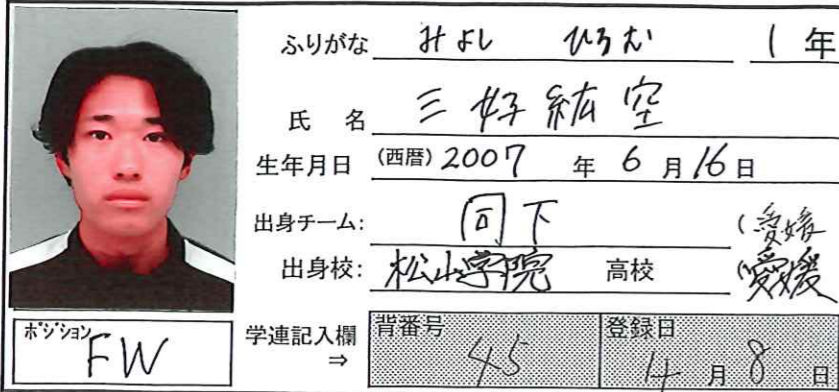 ふりがな みよし ひろむ 1年
氏名 三好紘空
生年月日 (西暦) 2007年 6月16日
出身チーム: 同下 (愛媛
出身校: 松山学院 高校 (愛媛
ポジション FW
学連記入欄 ⇒ 背番号 45 登録日 4月8日